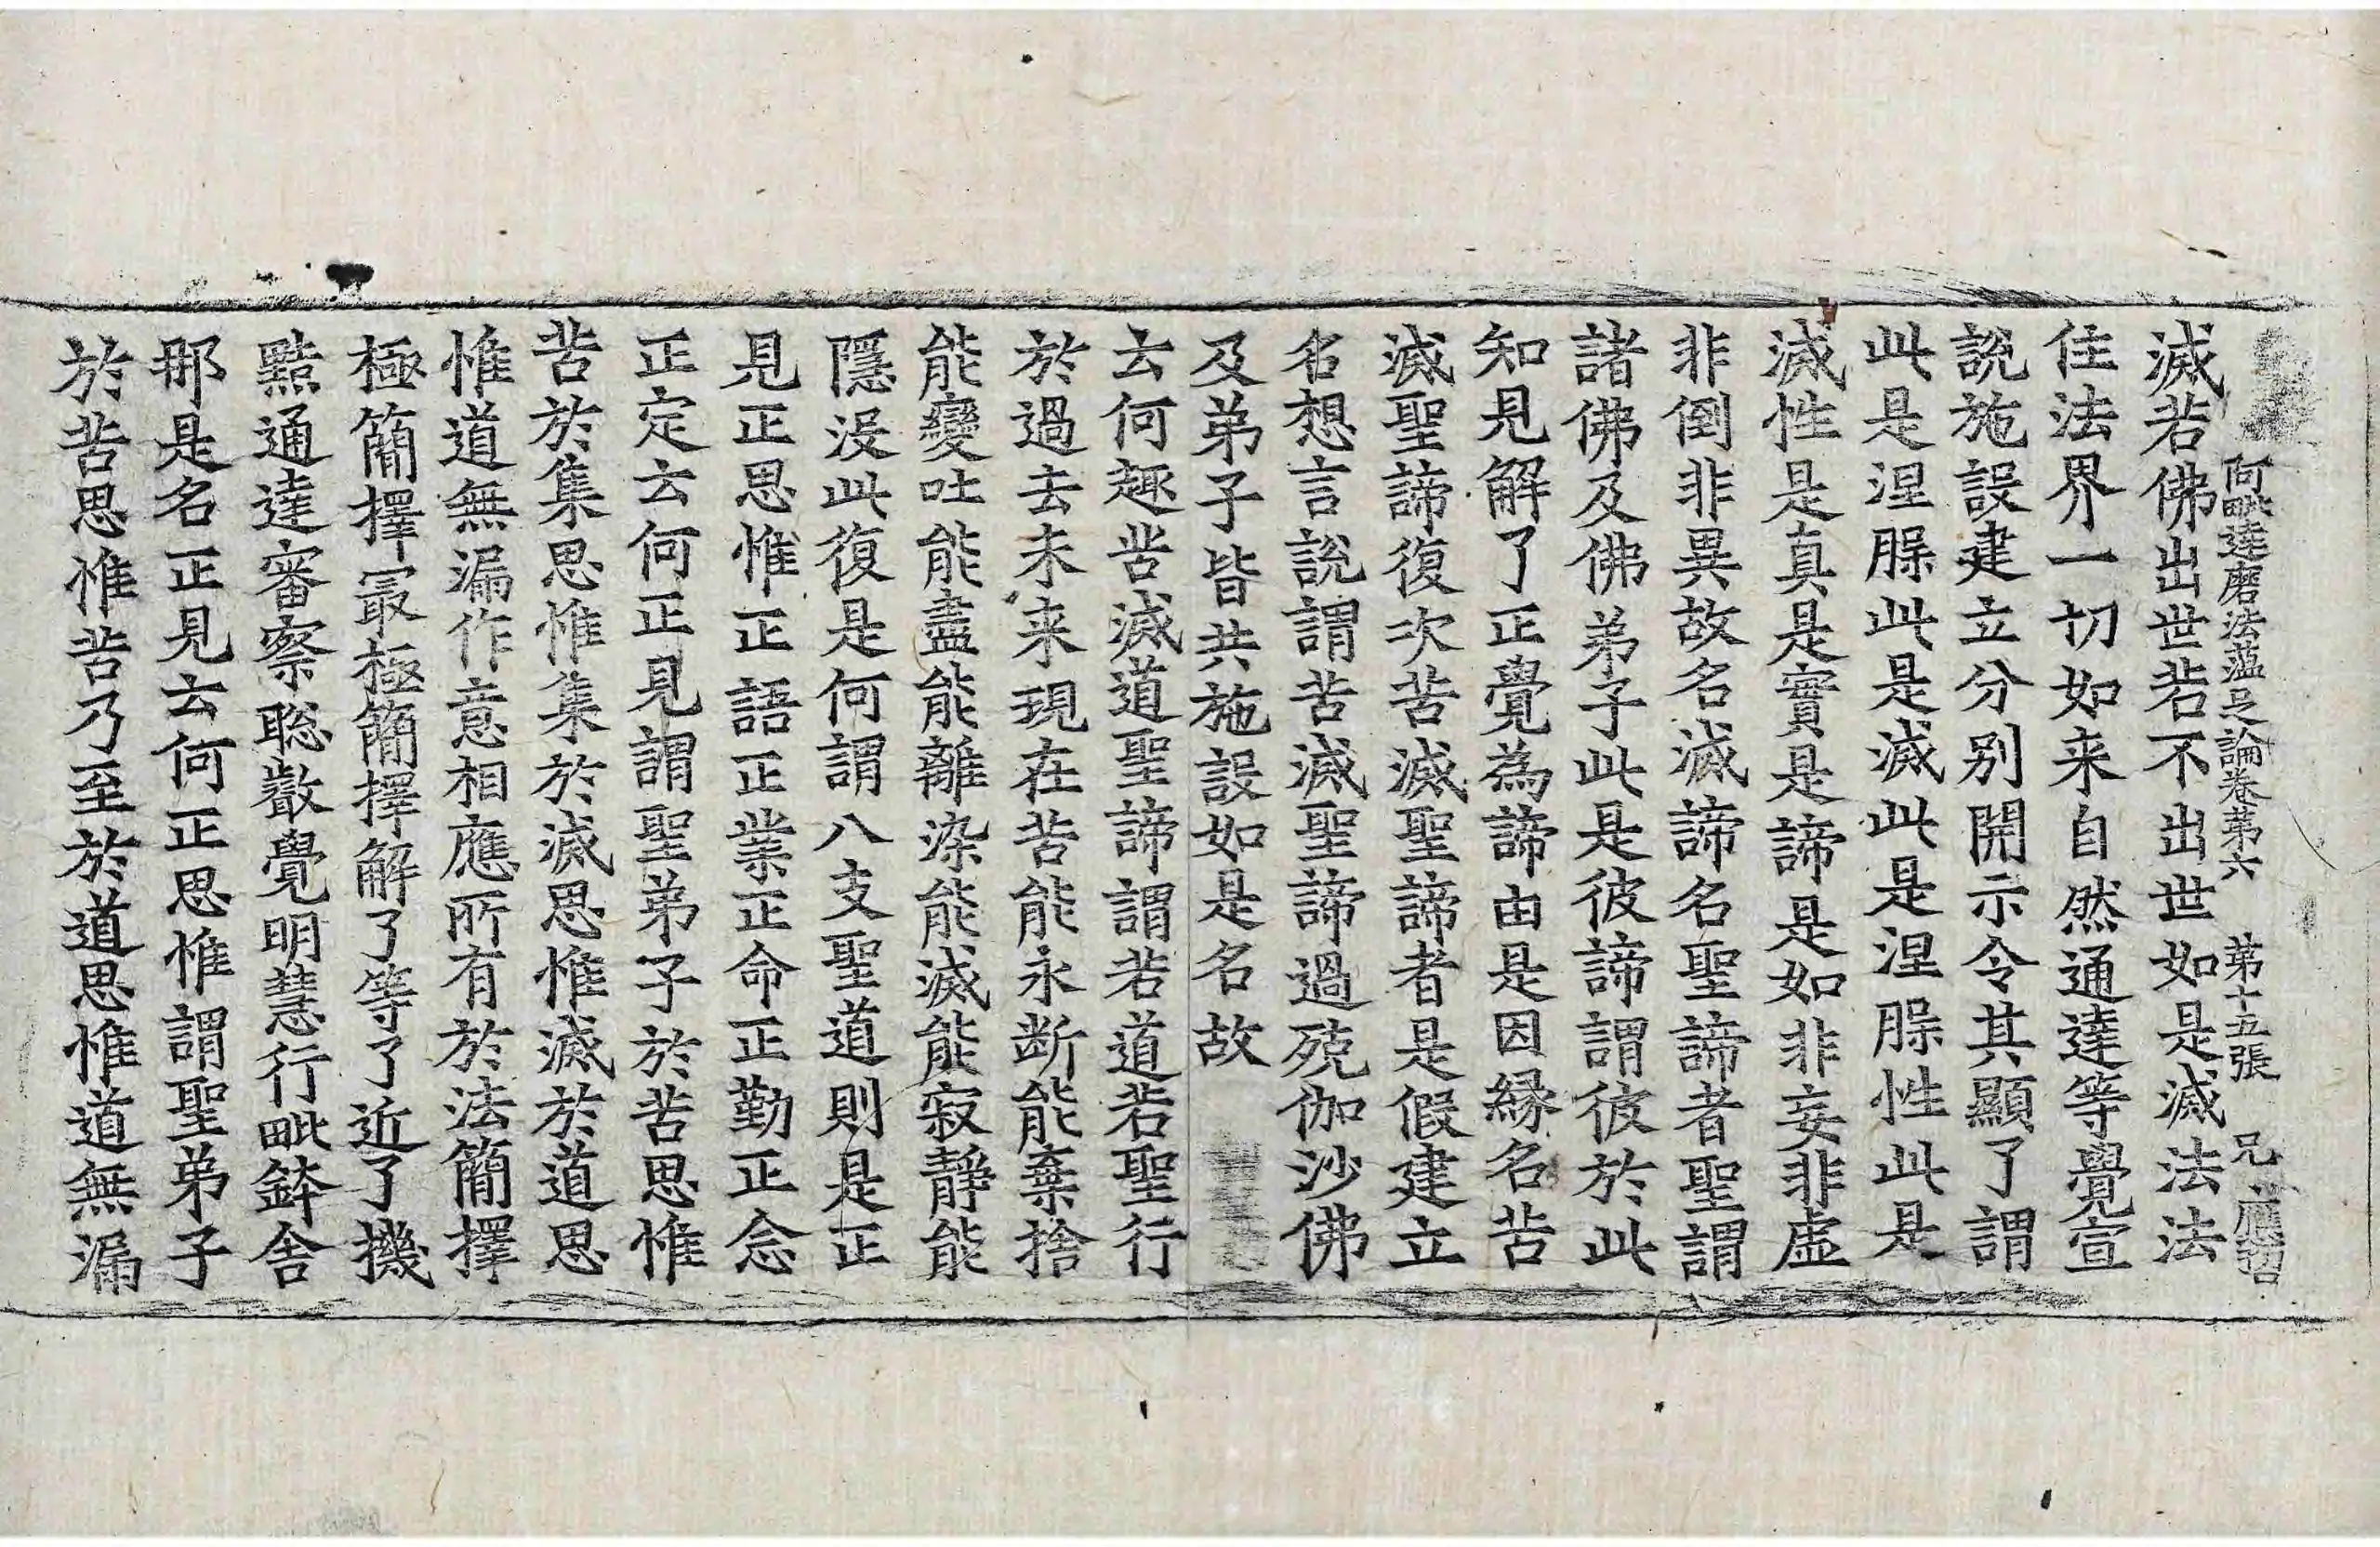 阿毗達磨法蘊足論卷第六 第十五張 兄
滅若佛出世若不出世如是滅法法
住法界一切如来自然通達等覺宣
說施設建立分别開示令其顯了謂
此是涅槃此是滅此是涅槃性此是
滅性是真是實是諦是如非妄非虚
非倒非異故名滅諦名聖諦者聖謂
諸佛及佛弟子此是彼諦謂彼於此
知見解了正覺為諦由是因緣名苦
滅聖諦復次苦滅聖諦者是假建立
名想言說謂苦滅聖諦過殑伽沙佛
及弟子皆共施設如是名故
云何趣苦滅道聖諦謂若道若聖行
於過去未来現在苦能永断能棄捨
能變吐能盡能離染能滅能寂靜能
隱没此復是何謂八支聖道則是正
見正思惟正語正業正命正勤正念
正定云何正見謂聖弟子於苦思惟
苦於集思惟集於滅思惟滅於道思
惟道無漏作意相應所有於法簡擇
極簡擇㝡極簡擇解了等了近了機
黠通達審察聡叡覺明慧行毗鉢舍
那是名正見云何正思惟謂聖弟子
於苦思惟苦乃至於道思惟道無漏